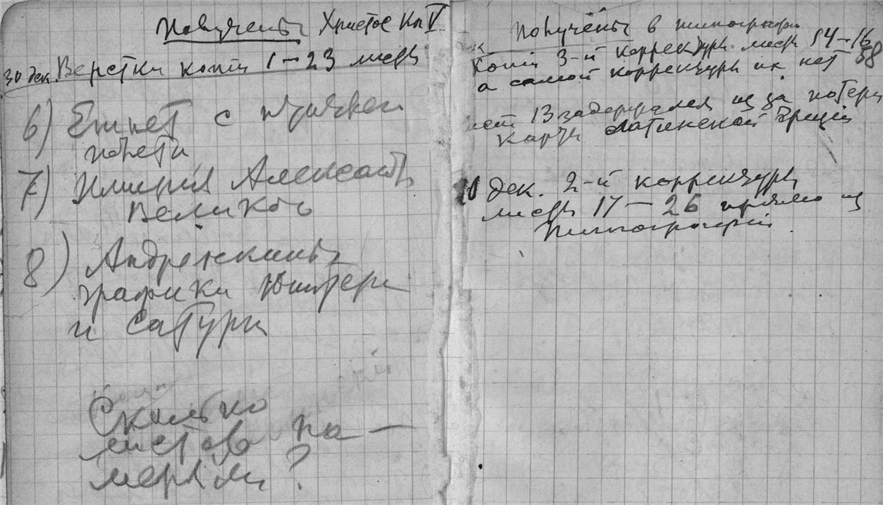 Получены Христос Кн V
30 дек Верстки копии 1–23 листы
6) Египет с
7) Империя Александр
Великого
8)
графики Юпитера
и Сатурна
Сколько
листов на–
мерили?
Получены в типографии
копии 3-й корректуры листы 14–16
а самой корректуры их нет
лист 13 задержался из за потери
карты Латинской Греции
10 дек. 2-й корректуры
листы 17–26 прямо из
типографии.